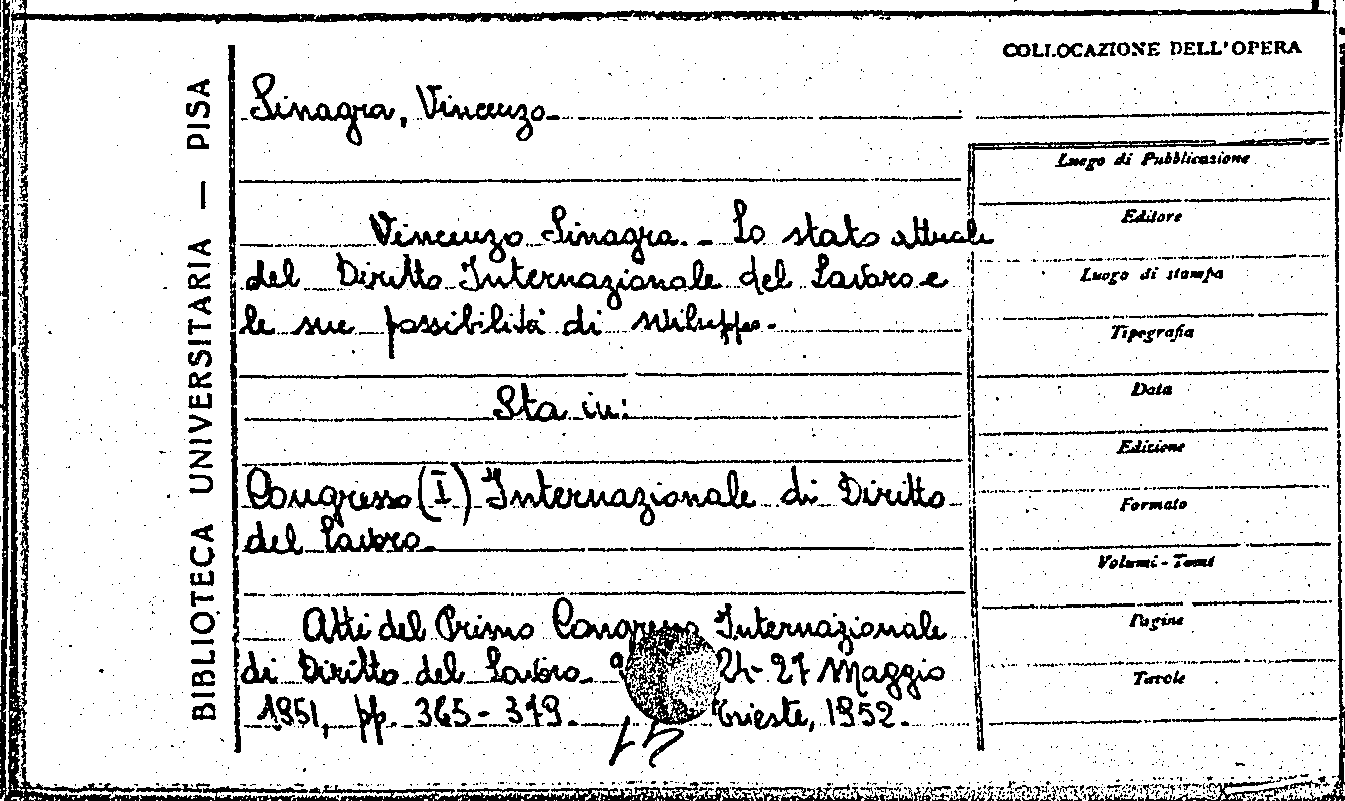 COLLOCAZIONE DELL'OPERA
BIBLIOTECA UNIVERSITARIA — PISA
Sinagra, Vincenzo.
Vincenzo Sinagra. - Lo stato attuale
del Diritto Internazionale del Lavoro e
le sue possibilità di sviluppo.
Sta in:
Congresso (I) Internazionale di Diritto
del Lavoro.
Atti del Primo Congresso Internazionale
di Diritto del Lavoro. 24-27 Maggio
1951, pp. 365-379. Trieste, 1952.
Luogo di Pubblicazione
Editore
Luogo di stampa
Tipografia
Data
Edizione
Formato
Volumi - Tomi
Pagine
Tavole